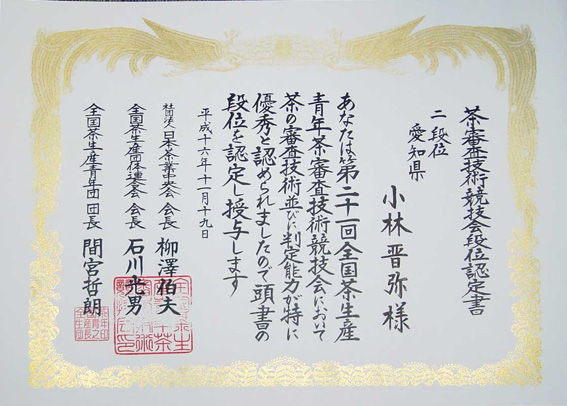 茶審査技術競技会段位認定書
二段位
愛知県
小林晋弥様
あなたは第二十一回全国茶生産
青年茶審査技術競技会において
茶の審査技術並びに判定能力が特に
優秀と認められましたので頭書の
段位を認定し授与します
平成十六年十一月十九日
社団法人日本茶業中央会 会長 柳澤伯夫
全国茶生産団体連合会 会長 石川光男
全国茶生産青年団 団長 間宮哲朗